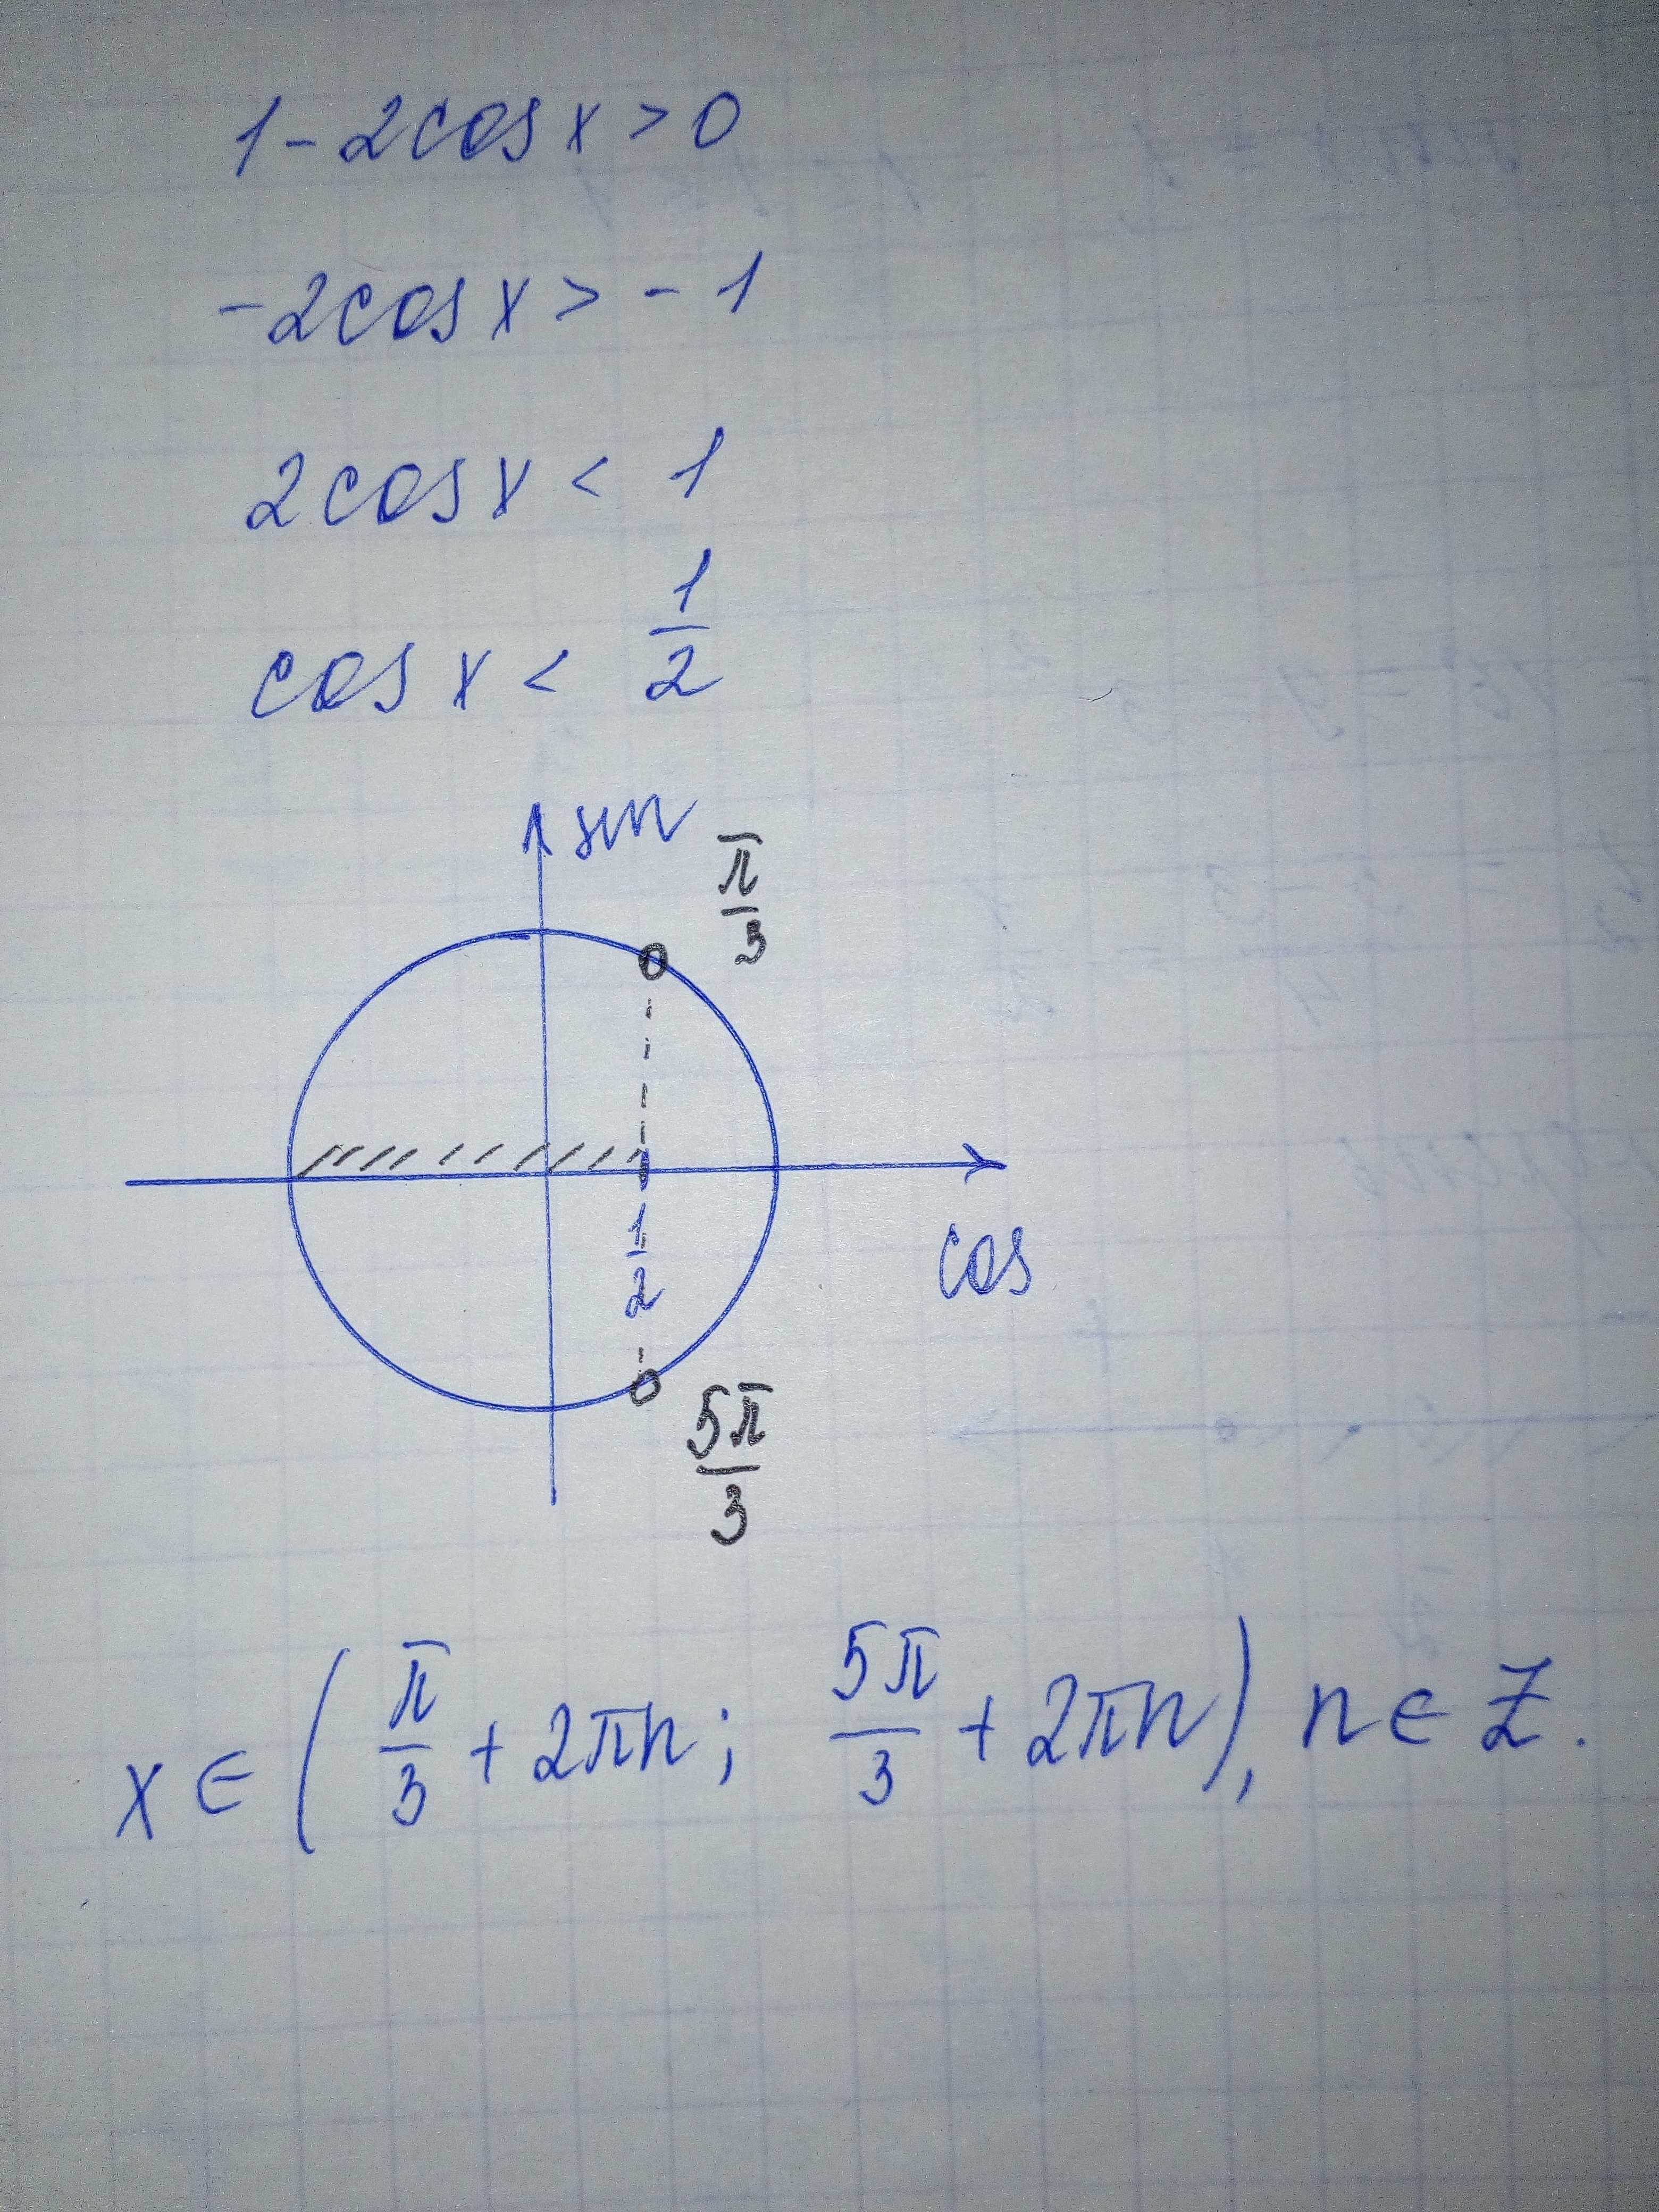 1 - 2cos x > 0
-2cos x > -1
2cos x < 1
cos x < 1/2
sin
π/3
1/2
cos
5π/3
x ∈ (π/3 + 2πn; 5π/3 + 2πn), n ∈ Z.